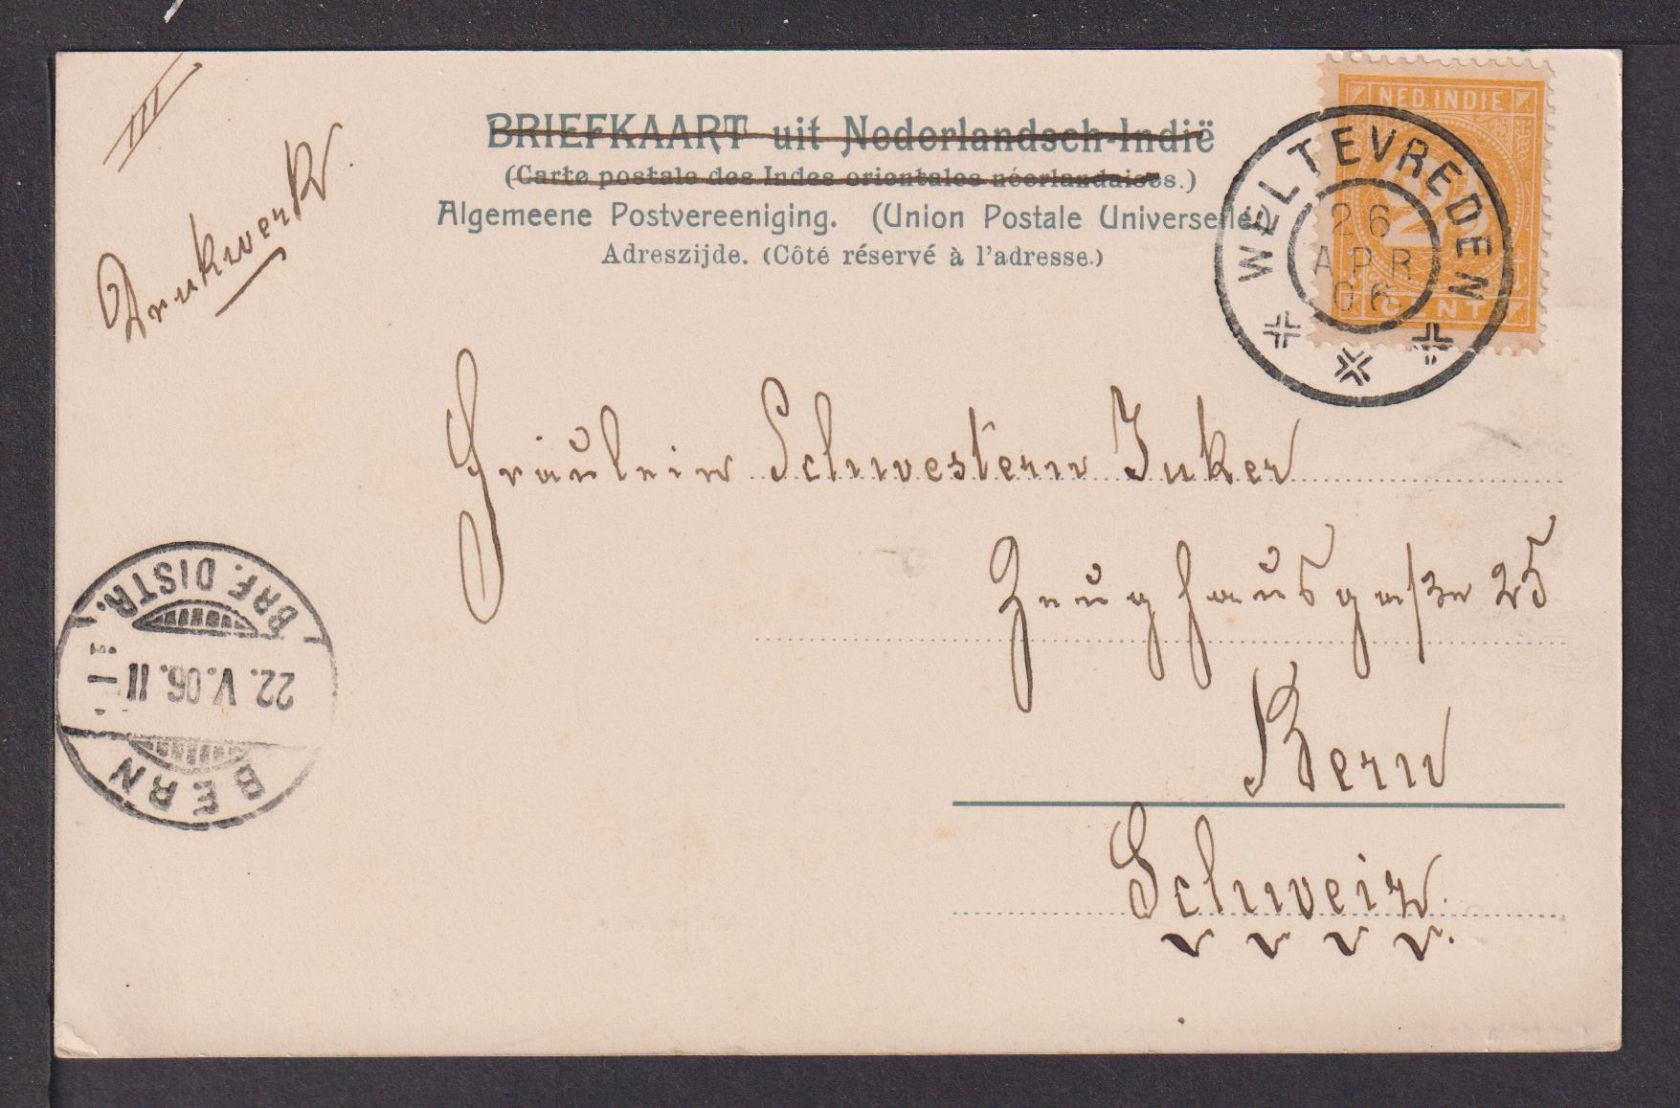 III
Drukwerk.
BRIEFKAART uit Nederlandsch-Indië
(Carte postale des Indes orientales néerlandaises.)
Algemeene Postvereeniging. (Union Postale Universelle.)
Adreszijde. (Côté réservé à l'adresse.)
NED. INDIE
2
CENT
WELTEVREDEN
26
APR
06
Fräulein Schwestern Juker
Zeughausgasse 25
Bern
Schweiz.
BRF. DISTR.
22. V. 06. II
BERN